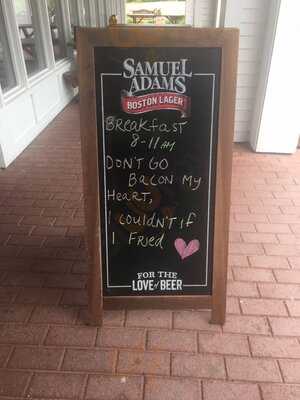 SAMUEL
ADAMS
BOSTON LAGER
BREAKFAST
8-11AM
DON'T GO
BACON MY
HEART,
I COULDN'T IF
I FRIED
FOR THE
LOVE of BEER